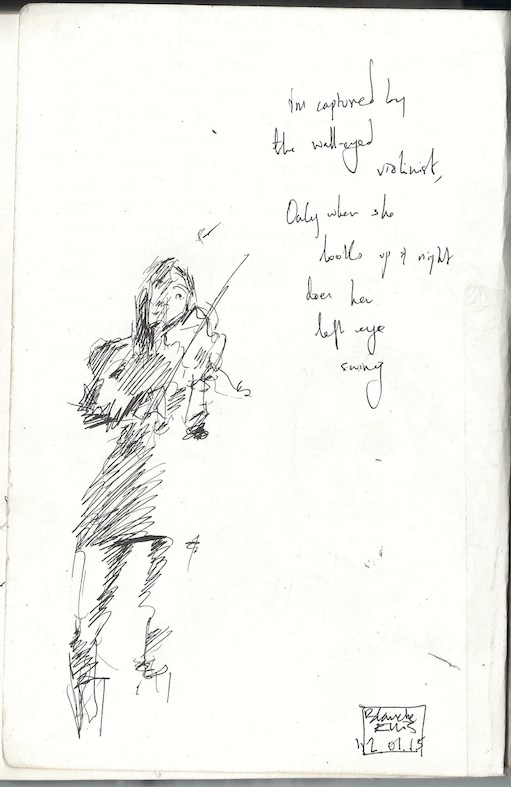 I'm captured by
the wall-eyed
violinist,
Only when she
looks up & right
does her
left eye
swing
Blanche
Ellis
12.01.15